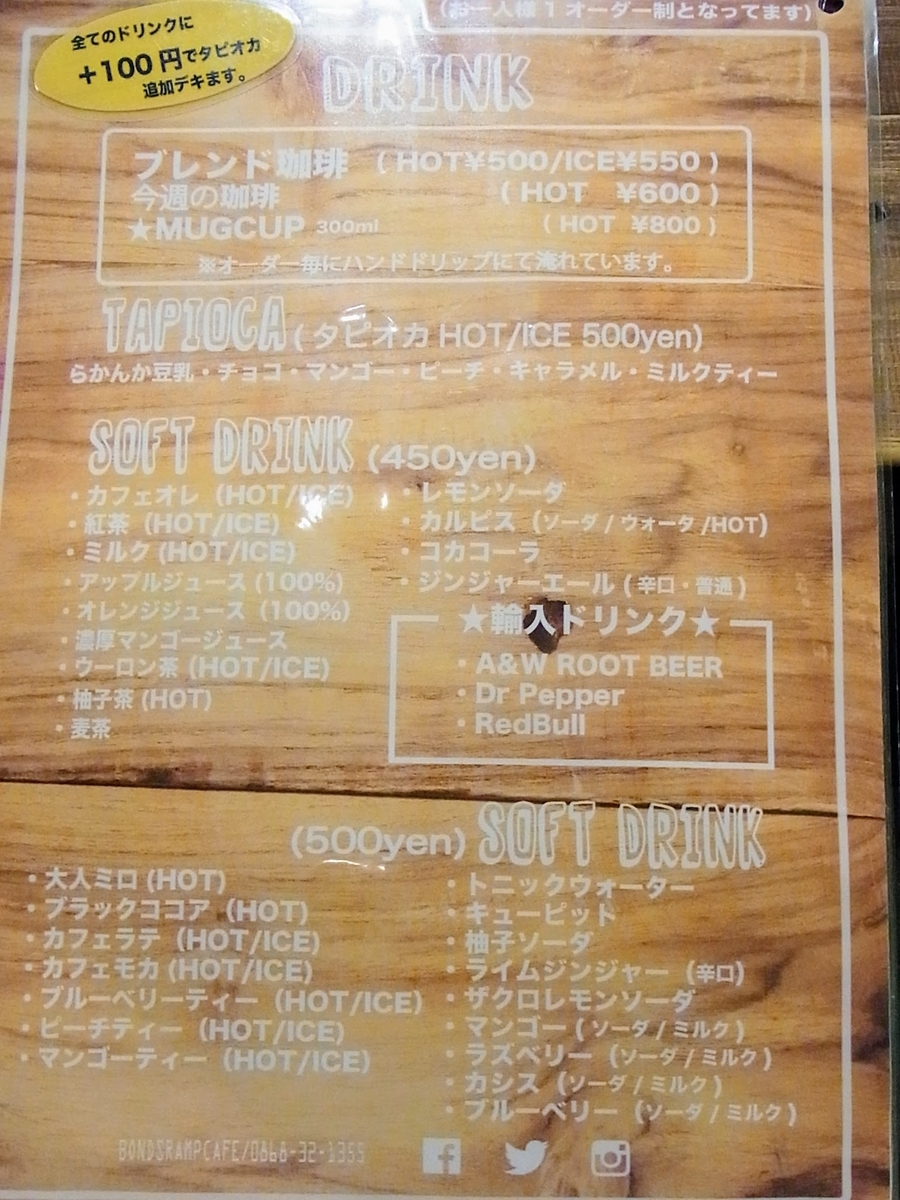 (お一人様1オーダー制となってます)
全てのドリンクに
+100円でタピオカ
追加デキます。
DRINK
ブレンド珈琲 (HOT¥500/ICE¥550)
今週の珈琲 (HOT ¥600)
★MUGCUP 300ml (HOT ¥800)
※オーダー毎にハンドドリップにて淹れています。
TAPIOCA (タピオカ HOT/ICE 500yen)
らかんか豆乳・チョコ・マンゴー・ピーチ・キャラメル・ミルクティー
SOFT DRINK (450yen)
・カフェオレ (HOT/ICE)
・紅茶 (HOT/ICE)
・ミルク (HOT/ICE)
・アップルジュース (100%)
・オレンジジュース (100%)
・濃厚マンゴージュース
・ウーロン茶 (HOT/ICE)
・柚子茶 (HOT)
・麦茶
・レモンソーダ
・カルピス (ソーダ/ウォータ/HOT)
・コカコーラ
・ジンジャーエール (辛口・普通)
★輸入ドリンク★
・A&W ROOT BEER
・Dr Pepper
・RedBull
(500yen) SOFT DRINK
・大人ミロ (HOT)
・ブラックココア (HOT)
・カフェラテ (HOT/ICE)
・カフェモカ (HOT/ICE)
・ブルーベリーティー (HOT/ICE)
・ピーチティー (HOT/ICE)
・マンゴーティー (HOT/ICE)
・トニックウォーター
・キューピット
・柚子ソーダ
・ライムジンジャー (辛口)
・ザクロレモンソーダ
・マンゴー (ソーダ/ミルク)
・ラズベリー (ソーダ/ミルク)
・カシス (ソーダ/ミルク)
・ブルーベリー (ソーダ/ミルク)
BONDSRAMPCAFE/0868-32-1355